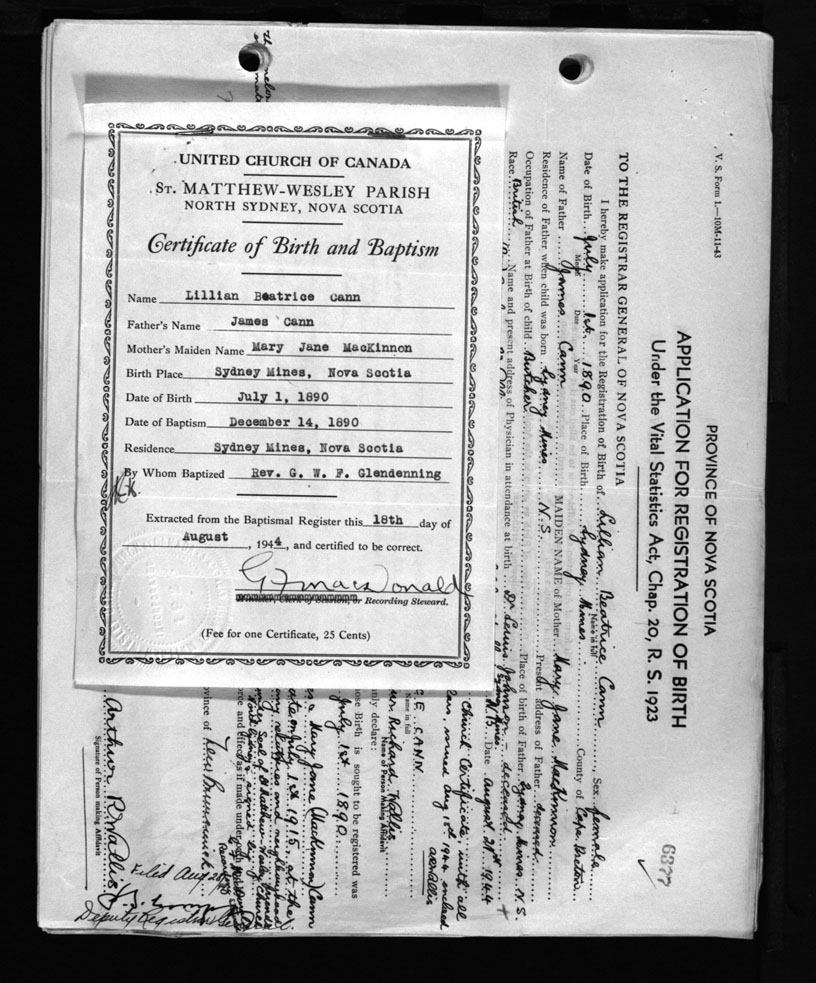 UNITED CHURCH OF CANADA
ST. MATTHEW-WESLEY PARISH
NORTH SYDNEY, NOVA SCOTIA
Certificate of Birth and Baptism
Name Lillian Beatrice Cann
Father's Name James Cann
Mother's Maiden Name Mary Jane MacKinnon
Birth Place Sydney Mines, Nova Scotia
Date of Birth July 1, 1890
Date of Baptism December 14, 1890
Residence Sydney Mines, Nova Scotia
By Whom Baptized Rev. G. W. F. Glendenning
Extracted from the Baptismal Register this 18th day of
August, 1944, and certified to be correct.
G F MacDonald
or Recording Steward.
(Fee for one Certificate, 25 Cents)
V. S. Form 1.—10M-11-43
6377
PROVINCE OF NOVA SCOTIA
APPLICATION FOR REGISTRATION OF BIRTH
Under the Vital Statistics Act, Chap. 20, R. S. 1923
TO THE REGISTRAR GENERAL OF NOVA SCOTIA
I hereby make application for the Registration of Birth of Lillian Beatrice Cann Sex female
Name in full
Date of Birth July 1st 1890 Place of Birth Sydney Mines County of Cape Breton
Month Day Year
Name of Father James Cann MAIDEN NAME of Mother Mary Jane MacKinnon
Residence of Father when child was born Sydney Mines N.S. Present address of Father deceased
Occupation of Father at Birth of child Butcher Place of birth of Father Sydney Mines N.S.
Race British Name and present address of Physician in attendance at birth Dr deceased
N.B. Date August 21st 1944
Church Certificate, with all
Aug 18th 1944 enclosed
ARWallis
CANN
Name in full
Arthur Richard Wallis
Name of Person Making Affidavit
declare:
whose Birth is sought to be registered was
July 1st 1890
Mary Jane (MacKinnon) Cann
July 1st 1915, at the
relatives and neighbourhood
Seal of St Matthew Wesley Church
North Sydney & signed by
force and effect as if made under oath
Province of New Brunswick
Arthur R Wallis
Signature of Person making Affidavit
Filed Aug
Deputy Registrar